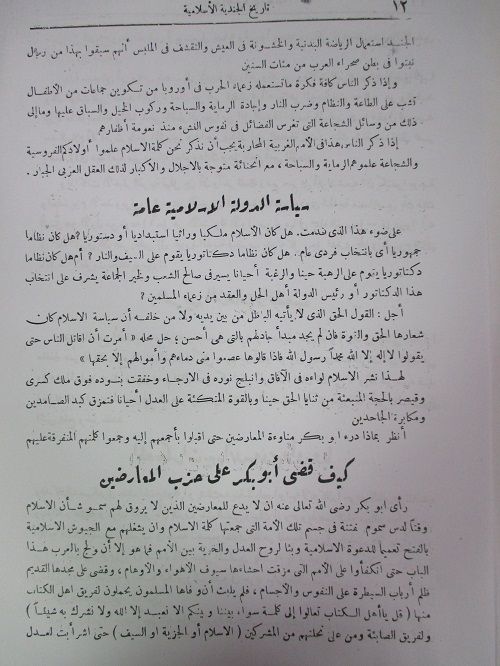 ١٢
تاريخ الجندية الاسلامية
الجنديـد استعمال الرياضة البدنية والخشونة فى العيش والتقشف فى الملبس أنهم سبقوا بهذا من رجال
نبتوا فى بطن صحراء العرب من مئات السنين
وإذا ذكر الناس كافة فكرة ما تستعمله زعماء الحرب فى أوروبا من تكوين جماعات من الأطفال
تشب على الطاعة والنظام وضرب النار وإجادة الرماية والسباحة وركوب الخيل والسباق عليها وما إلى
ذلك من وسائل الشجاعة التى تغرس الفضائل فى نفوس النشء منذ نعومة أظفارهم
إذا ذكر الناس هذا فى الأمم الغربية المحاربة يجب أن نذكر نحن كلمة الاسلام علموا أولادكم الفروسية
والشجاعة علموهم الرماية والسباحة ، مع انحنائة متوجة بالاجلال والأكبار لذلك العقل العربى الجبار .
سياسة الدولة الاسلامية عامة
على ضوء هذا الذى تقدمت . هل كان الاسلام ملكيا وراثيا استبداديا أو دستوريا ؟ هل كان نظاما
جمهوريا أى بانتخاب فردى عام . هل كان نظاما دكتاتوريا يقوم على السيف والنار ؟ أم هل كان نظاما
دكتاتوريا يقوم على الرهبة حينا والرغبة أحيانا يسير فى صالح الشعب ولخير الجماعة يشرف على انتخاب
هذا الدكتاتور أو رئيس الدولة أهل الحل والعقد من زعماء المسلمين ؟
أجل : القول الحق الذى لا يأتيه الباطل من بين يديه ولا من خلفه أن سياسة الاسلام كان
شعارها الحق والقوة فان لم يجد مبدأ جادلهم بالتى هى أحسن ؛ حل محله « أمرت أن أقاتل الناس حتى
يقولوا لا إله إلا الله محمداً رسول الله فاذا قالوها عصموا منى دماءهم وأموالهم إلا بحقها »
لهـذا نشر الاسلام لواءه فى الآفاق وانبلج نوره فى الارجاء وخفقت بنـوده فوق ملك كسرى
وقيصر بالحجة المنبعثة من ثنايا الحق حينا وبالقوة المتكئة على العدل أحيانا فتمزق كبد الصامدين
ومكابرة الجاحدين
أنظر بماذا درء ابو بكر مناوءة المعارضين حتى اقبلوا بأجمعهم إليه وجمعوا كلمتهم المتفرقة عليهم
كيف قضى أبو بكر على حزب المعارضين
رأى ابو بكر رضى الله تعالى عنه ان لا يدع للمعارضين الذين لا يروق لهم سمـو شـأن الاسلام
وقتاً لدس سموم نفثته فى جسم تلك الأمة التى جمعتها كلمة الاسلام وان يشغلهم مع الجيوش الاسلامية
بالفتح تعميما للدعوة الاسلامية وبثا لروح العدل والحرية بين الأمم فما هو إلا أن ولج بالعرب هـذا
الباب حتى انكفأوا على الأمم التى مزقت احشاءها سيوف الأهواء والأوهام ، وقضى على مجدها القديم
ظلم أرباب السيطرة على النفوس والأجسام ، فلم يلبث أن وافاها المسلمون يحملون لفريق اهل الكتاب
منها ( قل يا أهل الـكتاب تعالوا إلى كلمة سواء بيننا وبينكم الا نعبـد إلا الله ولا نشرك به شيئـاً )
ولفريق الصابئة ومن على نحلتهم من المشركين ( الاسلام أو الجزية او السيف ) حتى اشرأبت لعـدل